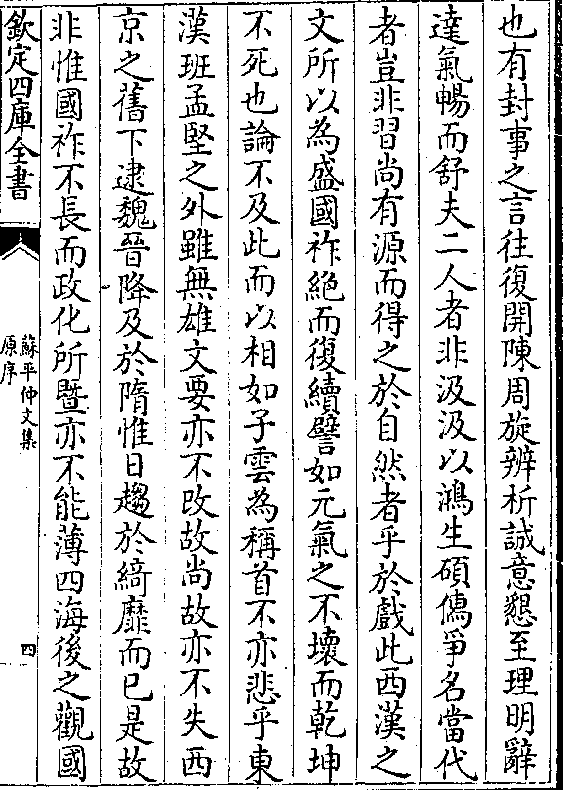 也有封事之言往復開陳周旋辨析誠意懇至理明辭
達氣暢而舒夫二人者非汲汲以鴻生碩儁爭名當代
者豈非習尚有源而得之於自然者乎於戲此西漢之
文所以為盛國祚絕而復續譬如元氣之不壞而乾坤
不死也論不及此而以相如子雲為稱首不亦悲乎東
漢班孟堅之外雖無雄文要亦不改故尚故亦不失西
京之舊下逮魏晉降及於隋惟日趨於綺靡而已是故
非惟國祚不長而政化所暨亦不能薄四海後之觀國
欽定四庫全書
蘇平仲文集
原序
四